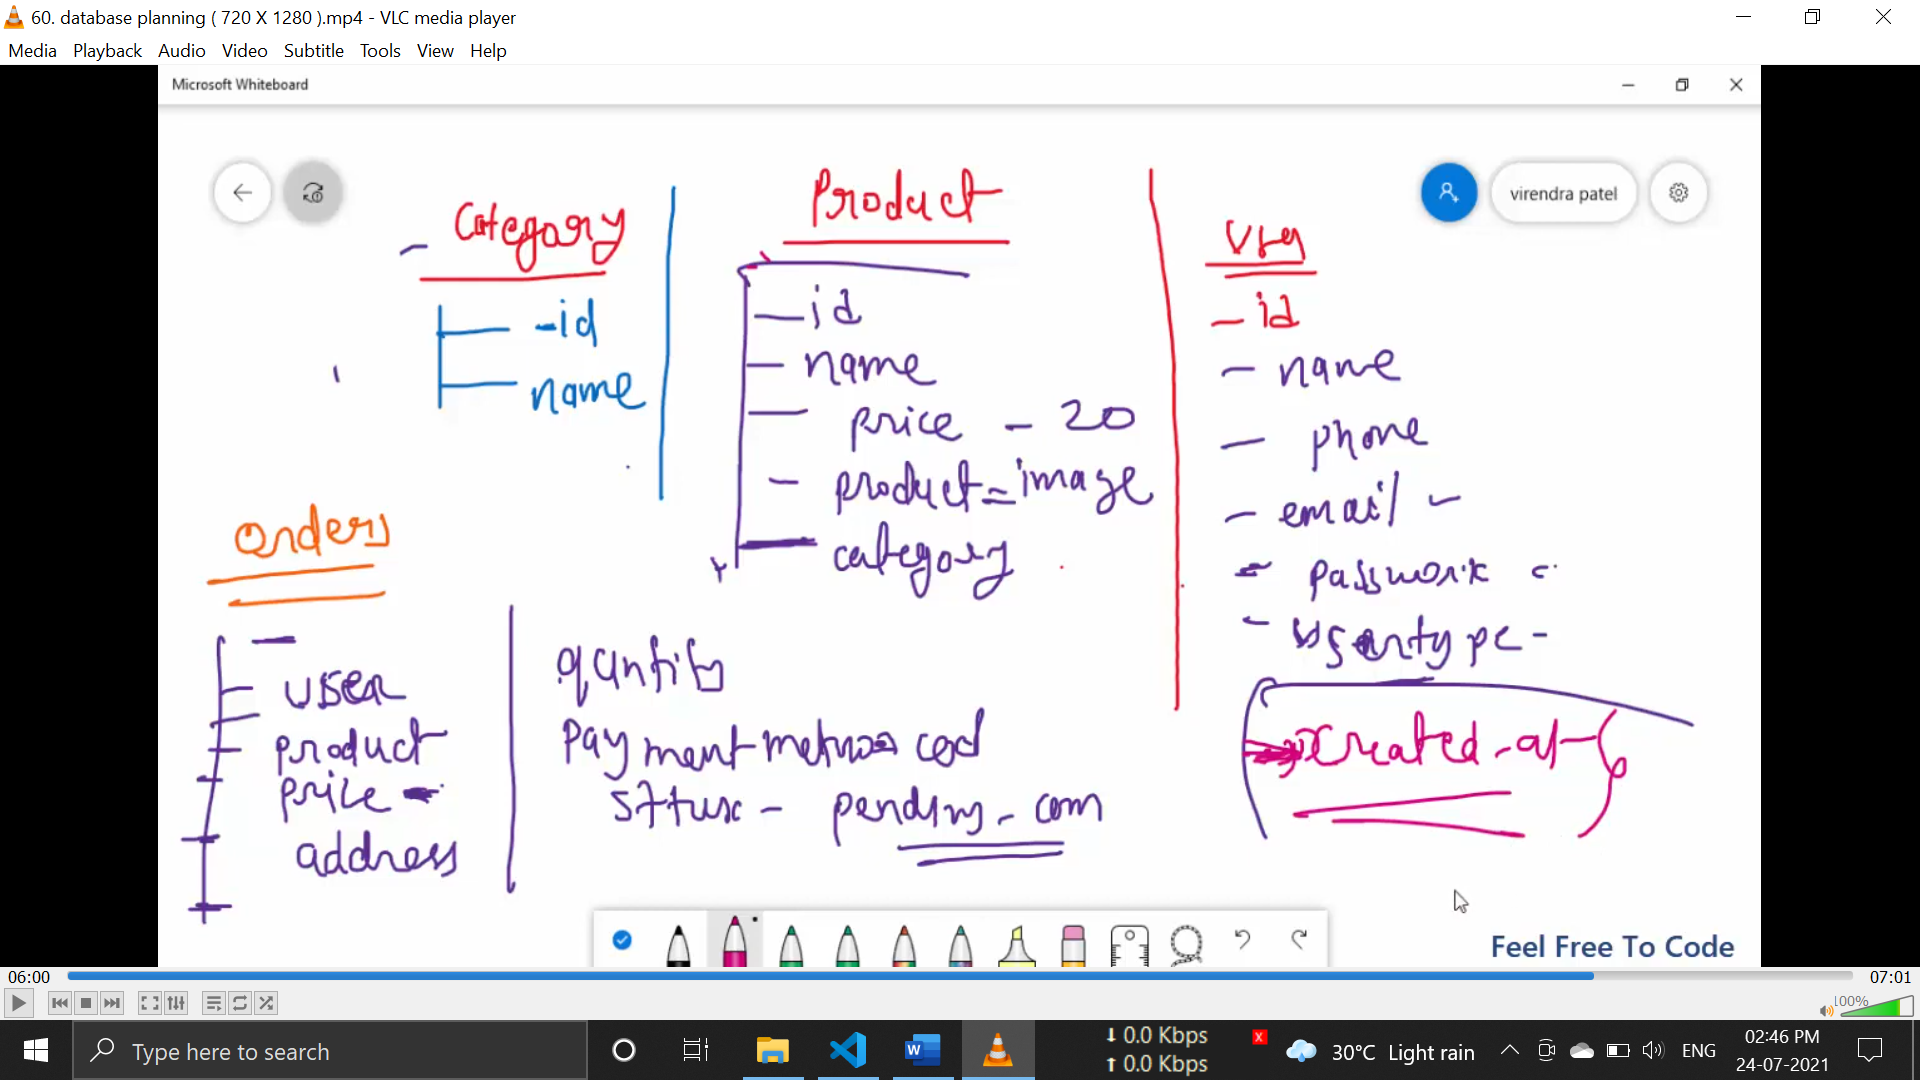 60. database planning ( 720 X 1280 ).mp4 - VLC media player
Media Playback Audio Video Subtitle Tools View Help
Microsoft Whiteboard
virendra patel
Category
-id
name
Product
id
name
price - 20
product = image
category
- id
- name
- phone
- email -
- passwork
- usertype -
created-at
Orders
user
product
price
address
quntity
payment method cod
status - pending - com
Feel Free To Code
06:00
07:01
100%
Type here to search
↓ 0.0 Kbps
↑ 0.0 Kbps
X
30°C Light rain
ENG
02:46 PM
24-07-2021